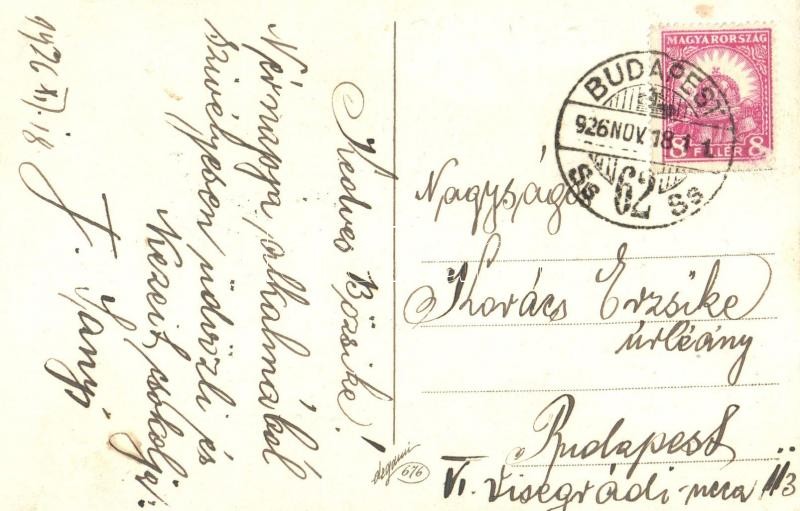 1926 XI. 18.
Kedves Bözsike!
Névnapja alkalmából
szivélyesen üdvözli és
kezeit csókolja:
J. Sanyi
degami
676
MAGYARORSZÁG
8 FILLÉR 8
BUDAPEST
926 NOV. 18. 1
62
Ss Ss
Nagyságos
Kovács Erzsike
úrleány
Budapest
VI. Visegrádi-ucca 113